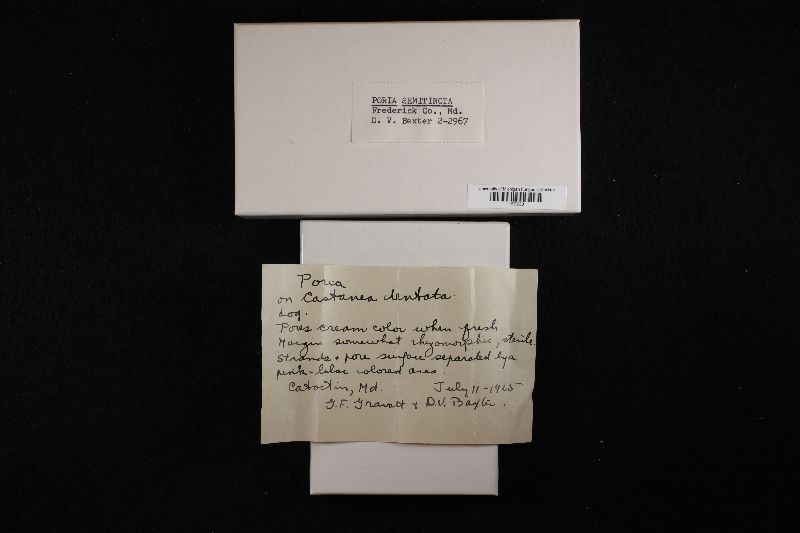 PORIA SEMITINCTA
Frederick Co., Md.
D. V. Baxter 2-2967
University of Michigan Fungus Collection
Poria
on Castanea dentata.
log.
Pores cream color when fresh.
Margin somewhat rhyzomorphic, sterile.
Strands & pore surface separated by a
pink-lilac colored area.
Catoctin, Md. July 11-1925
G.F. Gravatt & D.V. Baxter.